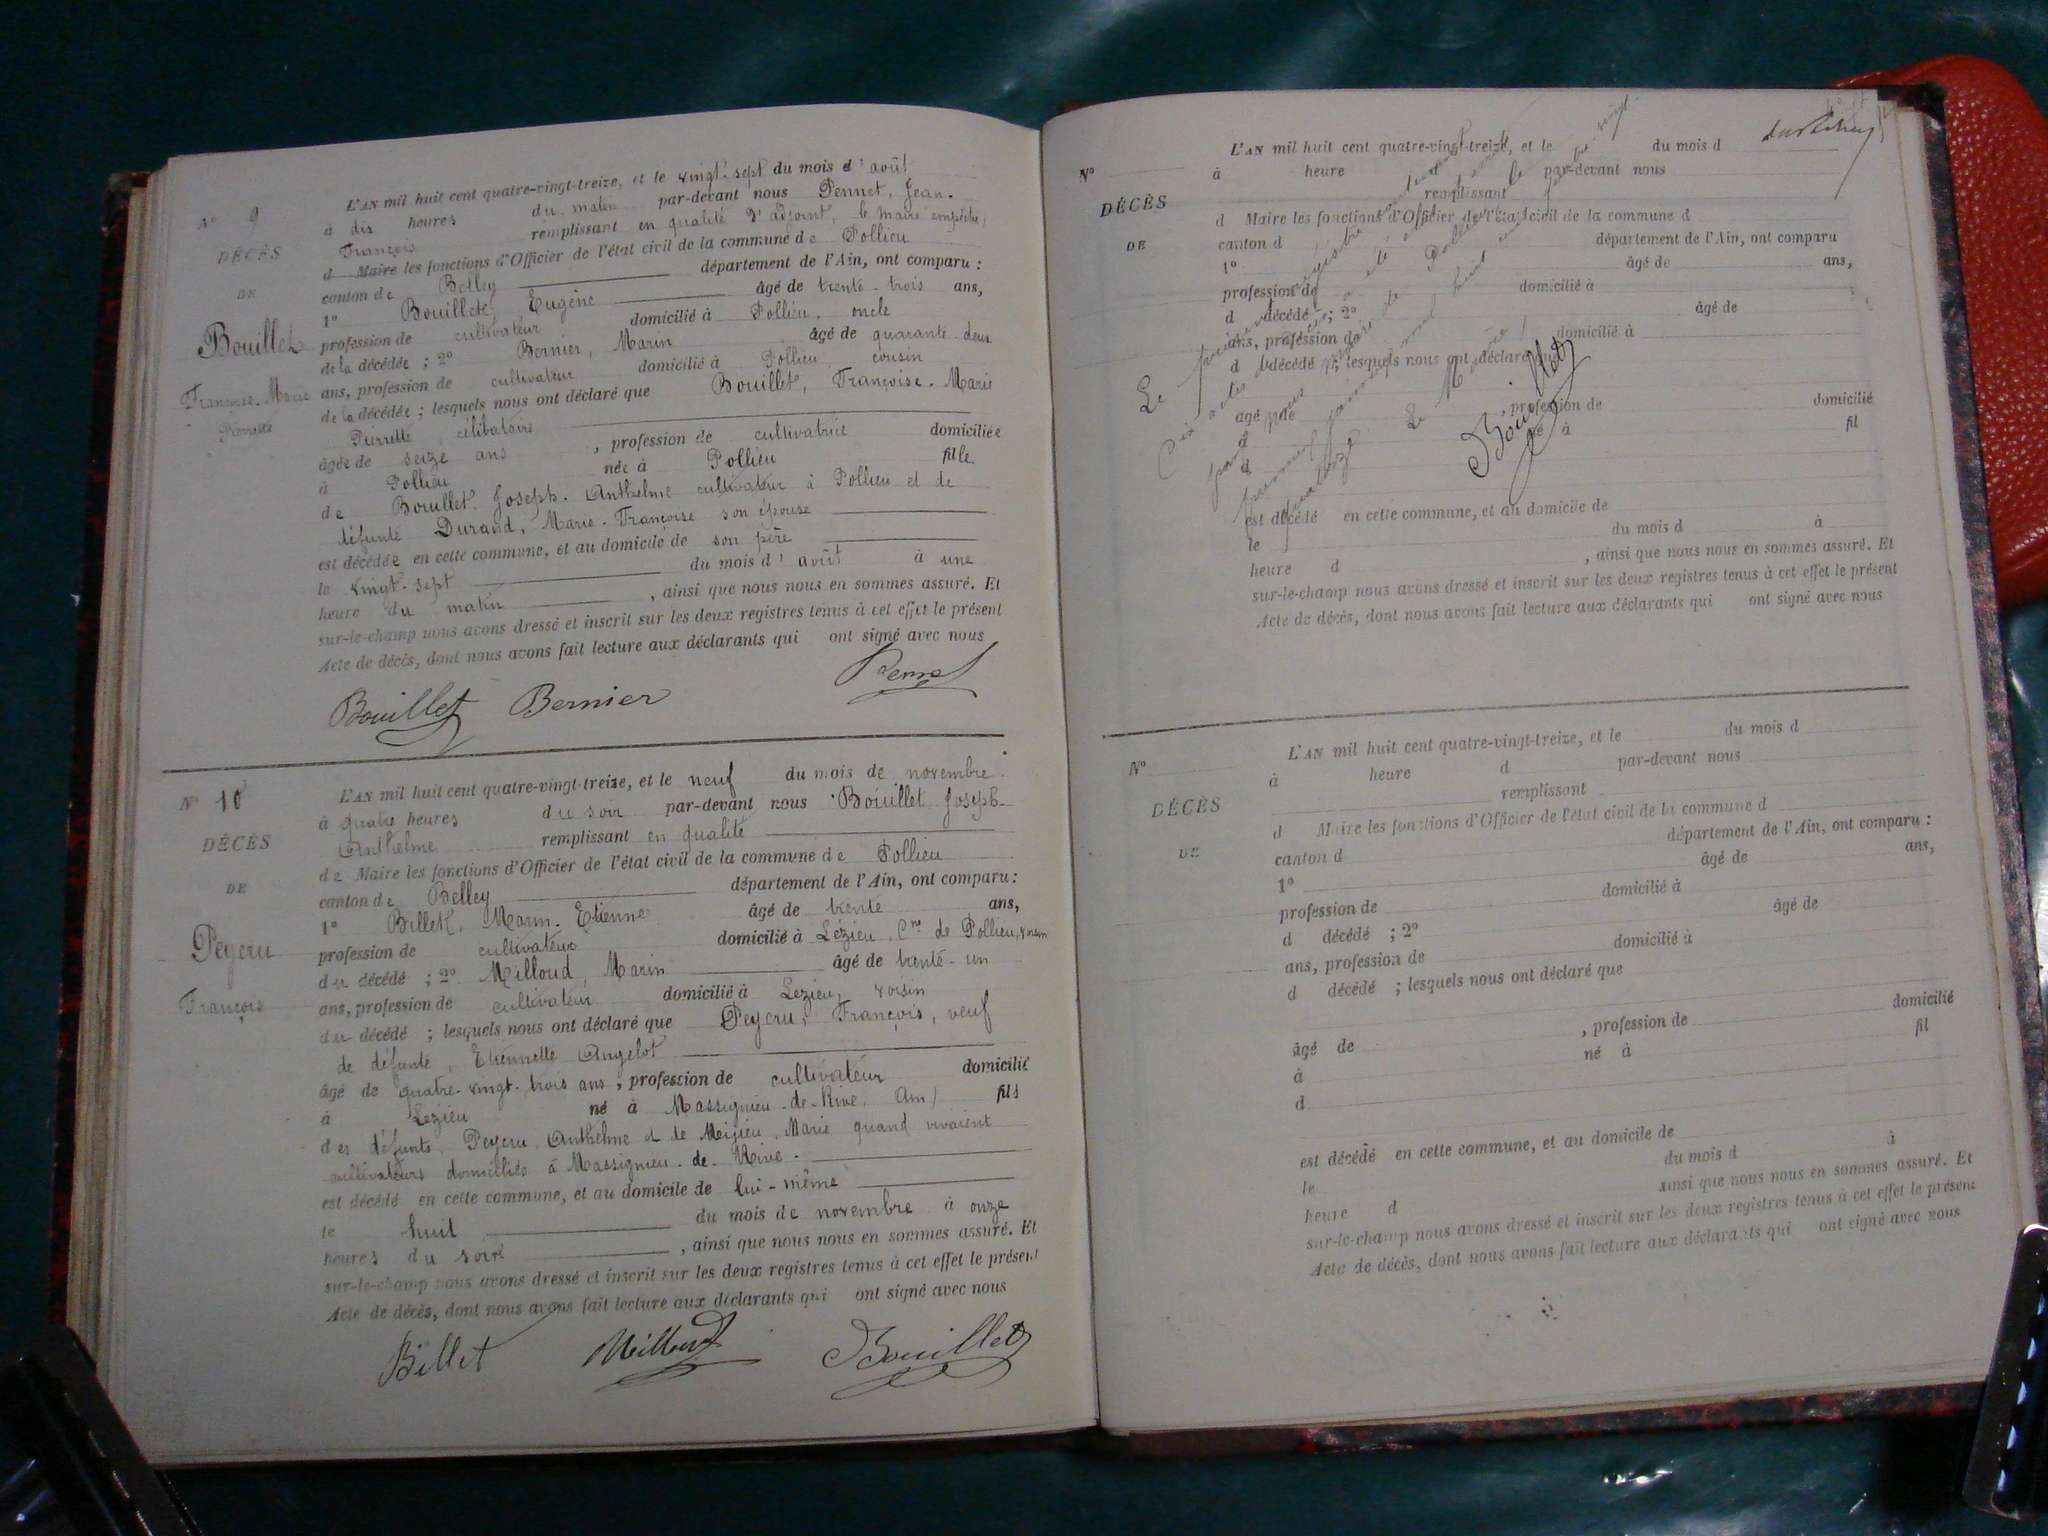 N° 9
DÉCÈS
DE
Bouillet
Françoise-Marie
Pierrette
L'AN mil huit cent quatre-vingt-treize, et le vingt-sept du mois d'août
à dix heures du matin par-devant nous Pennet, Jean-
François remplissant en qualité d'adjoint, le maire empêché,
d Maire les fonctions d'Officier de l'état civil de la commune de Pollieu
canton de Belley département de l'Ain, ont comparu :
1° Bouillet, Eugène âgé de trente-trois ans,
profession de cultivateur domicilié à Pollieu, oncle
de la décédée ; 2° Bernier, Marin âgé de quarante-deux
ans, profession de cultivateur domicilié à Pollieu, cousin
de la décédée ; lesquels nous ont déclaré que Bouillet, Françoise-Marie
Pierrette, célibataire
âgée de seize ans , profession de cultivatrice domiciliée
à Pollieu née à Pollieu fille
de Bouillet, Joseph-Anthelme cultivateur à Pollieu et de
défunte Durand, Marie-Françoise son épouse
est décédée en cette commune, et au domicile de son père
le vingt-sept du mois d'août à une
heure du matin , ainsi que nous nous en sommes assuré. Et
sur-le-champ nous avons dressé et inscrit sur les deux registres tenus à cet effet le présent
Acte de décès, dont nous avons fait lecture aux déclarants qui ont signé avec nous
Bouillet Bernier
N° 10
DÉCÈS
DE
Peycru
François
L'AN mil huit cent quatre-vingt-treize, et le neuf du mois de novembre
à quatre heures du soir par-devant nous Bouillet Joseph-
Anthelme remplissant en qualité
de Maire les fonctions d'Officier de l'état civil de la commune de Pollieu
canton de Belley département de l'Ain, ont comparu :
1° Billet, Marin-Etienne âgé de trente ans,
profession de cultivateur domicilié à Lézieu, Cne de Pollieu, voisin
du décédé ; 2° Milloud, Marin âgé de trente-un
ans, profession de cultivateur domicilié à Lezieu, voisin
du décédé ; lesquels nous ont déclaré que Peycru, François, veuf
de défunte, Etiennette Angelot
âgé de quatre-vingt-trois ans , profession de cultivateur domicilié
à Lezieu né à Massignieu-de-Rive, Ain) fils
des défunts Peycru, Anthelme et de Mijieu, Marie quand vivaient
cultivateurs domiciliés à Massignieu-de-Rive.
est décédé en cette commune, et au domicile de lui-même
le huit du mois de novembre à onze
heures du soir , ainsi que nous nous en sommes assuré. Et
sur-le-champ nous avons dressé et inscrit sur les deux registres tenus à cet effet le présent
Acte de décès, dont nous avons fait lecture aux déclarants qui ont signé avec nous
Billet Milloud Bouillet
N°
DÉCÈS
DE
L'AN mil huit cent quatre-vingt-treize, et le du mois d
à heure par-devant nous
remplissant
d Maire les fonctions d'Officier de l'état civil de la commune d
canton d département de l'Ain, ont comparu
1° âgé de ans,
profession de domicilié à
d décédé ; 2° âgé de
ans, profession de domicilié à
d décédé ; lesquels nous ont déclaré que
âgé de , profession de domicilié
à né à fil
d
est décédé en cette commune, et au domicile de
le du mois d à
heure d , ainsi que nous nous en sommes assuré. Et
sur-le-champ nous avons dressé et inscrit sur les deux registres tenus à cet effet le présent
Acte de décès, dont nous avons fait lecture aux déclarants qui ont signé avec nous
Le présent registre
par nous maire de Pollieu
Le Maire
Bouillet
N°
DÉCÈS
DE
L'AN mil huit cent quatre-vingt-treize, et le du mois d
à heure d par-devant nous
remplissant
d Maire les fonctions d'Officier de l'état civil de la commune d
canton d département de l'Ain, ont comparu :
1° âgé de ans,
profession de domicilié à
d décédé ; 2° âgé de
ans, profession de domicilié à
d décédé ; lesquels nous ont déclaré que
âgé de , profession de domicilié
à né à fil
d
est décédé en cette commune, et au domicile de
le du mois d à
heure d ainsi que nous nous en sommes assuré. Et
sur-le-champ nous avons dressé et inscrit sur les deux registres tenus à cet effet le présent
Acte de décès, dont nous avons fait lecture aux déclarants qui ont signé avec nous